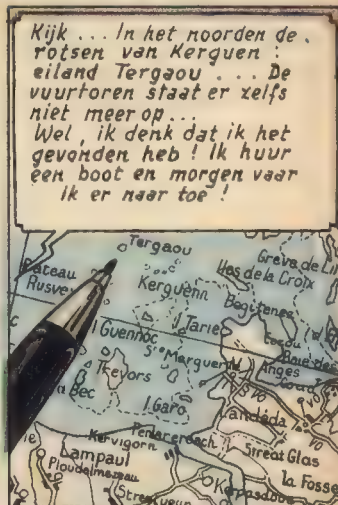 Kijk ... In het noorden de
rotsen van Kerguen :
eiland Tergaou ... De
vuurtoren staat er zelfs
niet meer op ...
Wel, ik denk dat ik het
gevonden heb ! Ik huur
een boot en morgen vaar
ik er naar toe !
Tergaou
Plateau
Rusven
Kerguenn
Iles de la Croix
Greve de
Begitenee
I Guennoc
I Tariec
Sº Marguerite
Baie des
Anges
Trevors
Bec
I. Garo
Landéda
Penarereach
Kervigorn
Sireat Glas
Lampaul
Ploudalmezeau
la Fosse